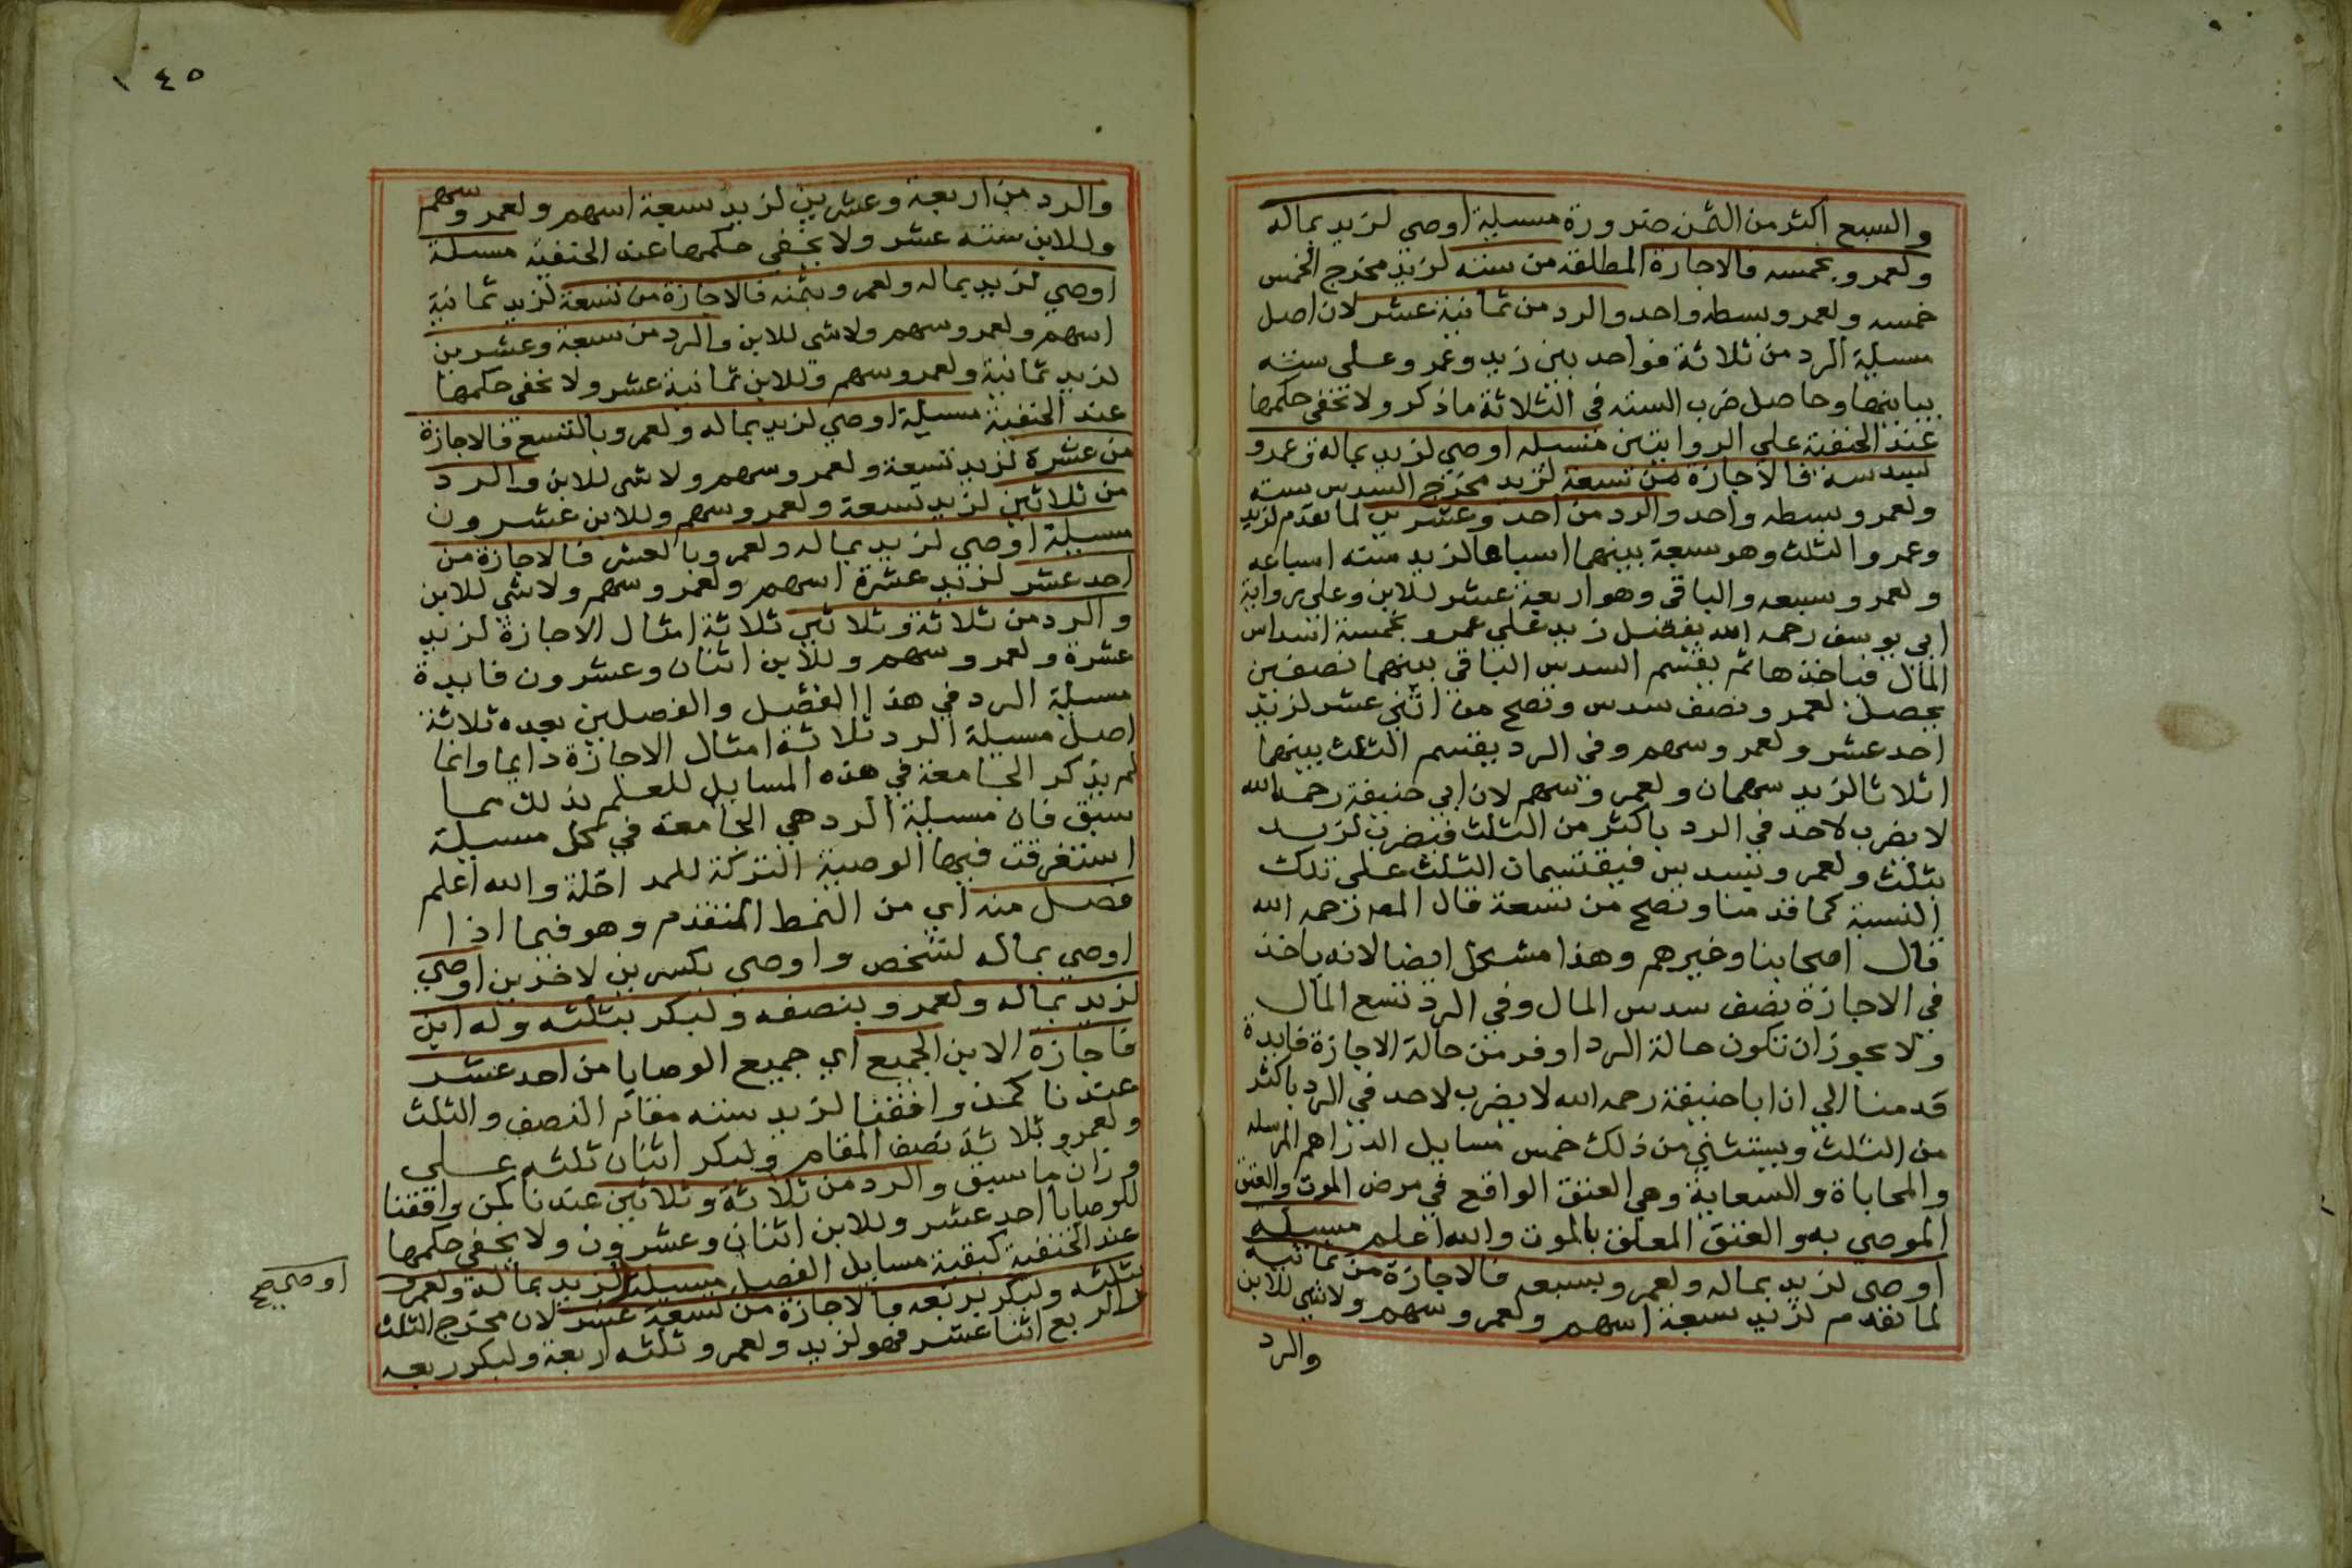 والسبع اكثر من الثمن ضرورة مسيلة اوصي لزيد بماله
ولعمرو بخمسه فالاجازة المطلقة من سته لزيد مخرج الخمس
خمسه ولعمرو بسطه واحد والرد من ثمانية عشر لان اصل
مسيلة الرد من ثلاثة فواحد بين زيد وعمرو على سته
يباينها وحاصل ضرب السته في الثلاثة ما ذكر ولا تخفي حكمها
عند الحنفية علي الروايتين مسيله اوصي لزيد بماله وعمرو
لسدسه فالاجازة من تسعة لزيد مخرج السدس سته
ولعمرو بسطه واحد والرد من احد وعشرين لما تقدم لزيد
وعمرو الثلث وهو سبعة بينهما اسباعا لزيد سته اسباعه
ولعمرو سبعه والباقي وهو اربعة عشر للابن وعلي رواية
ابي يوسف رحمه الله يفضل زيد علي عمرو بخمسة اسداس
المال فياخذها ثم يقسم السدس الباقي بينهما نصفين
يحصل لعمرو نصف سدس وتصح من اثني عشر لزيد
احد عشر ولعمرو سهم وفي الرد يقسم الثلث بينهما
اثلاثا لزيد سهمان ولعمرو سهم لان ابي حنيفة رحمه الله
لا يضرب لاحد في الرد باكثر من الثلث فيضرب لزيد
بثلث ولعمرو بسدس فيقتسمان الثلث على تلك
النسبة كما قدمنا وتصح من تسعة قال المص رحمه الله
قال اصحابنا وغيرهم وهذا مشكل ايضا لانه ياخذ
في الاجازة نصف سدس المال وفي الرد تسع المال
ولا يجوز ان تكون حالة الرد اوفر من حالة الاجازة فايدة
قدمنا الي ان ابا حنيفة رحمه الله لا يضرب لاحد في الرد باكثر
من الثلث ويستثني من ذلك خمس مسايل الدراهم المرسله
والمحاباة والسعاية وهي العتق الواقع في مرض الموت والعتق
الموصي به والعتق المعلق بالموت والله اعلم مسيله
اوصي لزيد بماله ولعمرو بسبعه فالاجازة من ثمانية
لما تقدم لزيد سبعة اسهم ولعمرو سهم ولا شي للابن
والرد
١٤٥
والرد من اربعة وعشرين لزيد سبعة اسهم ولعمرو سهم
وللابن ستة عشر ولا يخفي حكمها عند الحنفية مسيلة
اوصي لزيد بماله ولعمرو بثمنه فالاجازة من تسعة لزيد ثمانية
اسهم ولعمرو سهم ولا شي للابن والرد من سبعة وعشرين
لزيد ثمانية ولعمرو سهم وللابن ثمانية عشر ولا تخفي حكمها
عند الحنفية مسيلة اوصي لزيد بماله ولعمرو بالتسع فالاجازة
من عشرة لزيد تسعة ولعمرو سهم ولا شي للابن والرد
من ثلاثين لزيد تسعة ولعمرو سهم وللابن عشرون
مسيلة اوصي لزيد بماله ولعمرو بالعشر فالاجازة من
احد عشر لزيد عشرة اسهم ولعمرو سهم ولا شي للابن
والرد من ثلاثة وثلاثين ثلاثة امثال الاجازة لزيد
عشرة ولعمرو سهم وللابن اثنان وعشرون فايدة
مسيلة الرد في هذا الفصل والفصلين بعده ثلاثة
اصل مسيلة الرد ثلاثة امثال الاجازة دايما وانما
لم يذكر الجامعة في هذه المسايل للعلم بذلك مما
سبق فان مسيلة الرد هي الجامعة في كل مسيلة
استغرقت فيها الوصية التركة للمداخلة والله اعلم
فصل منه اي من النمط المتقدم وهو فيما اذا
اوصي بماله لشخص واوصي بكسرين لاخرين اوصي
لزيد بماله ولعمرو بنصفه ولبكر بثلثه وله ابن
فاجازة الابن الجميع اي جميع الوصايا من احد عشر
عندنا كمن وافقنا لزيد سته مقام النصف والثلث
ولعمرو ثلاثة نصف المقام ولبكر اثنان ثلثه على
وزان ما سبق والرد من ثلاثة وثلاثين عندنا كمن وافقنا
للوصايا احد عشر وللابن اثنان وعشرون ولا يخفي حكمها
عند الحنفية كبقية مسايل الفصل مسيلة لزيد بماله ولعمرو
اوصي صح
بثلثه ولبكر بربعه فالاجازة من تسعة عشر لان مخرج الثلث
والربع اثنا عشر فهو لزيد ولعمرو ثلثه اربعة ولبكر ربعه